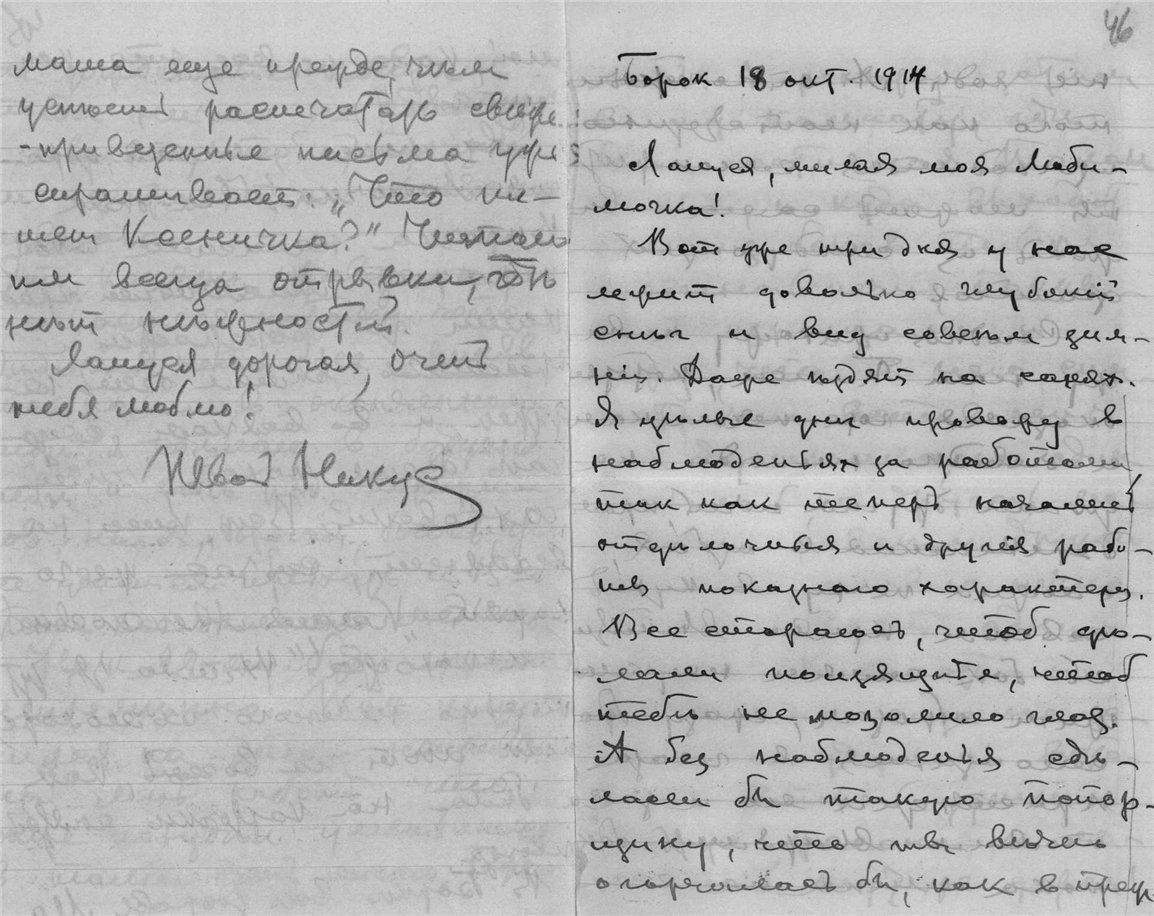 мама еще прежде, чем
успеет распечатать свеже-
-привезенные письма уже
спрашивает: „Что пи-
шет Ксеничка?" Читаю
им всегда отрывки, где
нет нежностей.
Лапуся дорогая, очень
тебя люблю!
Твой Никуся
46
Борок 18 окт. 1914
Лапуся, милая моя Люби-
мочка!
Вот уже три дня у нас
лежит довольно глубокий
снег и вид совсем зим-
ній. Даже ездят на санях.
Я целые дни провожу в
наблюденіях за работами,
так как теперь начались
отделочныя и другія рабо-
ты показнаго характера.
Все стараюсь, чтоб сде-
лали поизящнее, чтоб
тебе не мозолило глаз.
А без наблюденья сде-
лали бы такую топор-
щину, что ты весьма
огорчилась бы, как в преж